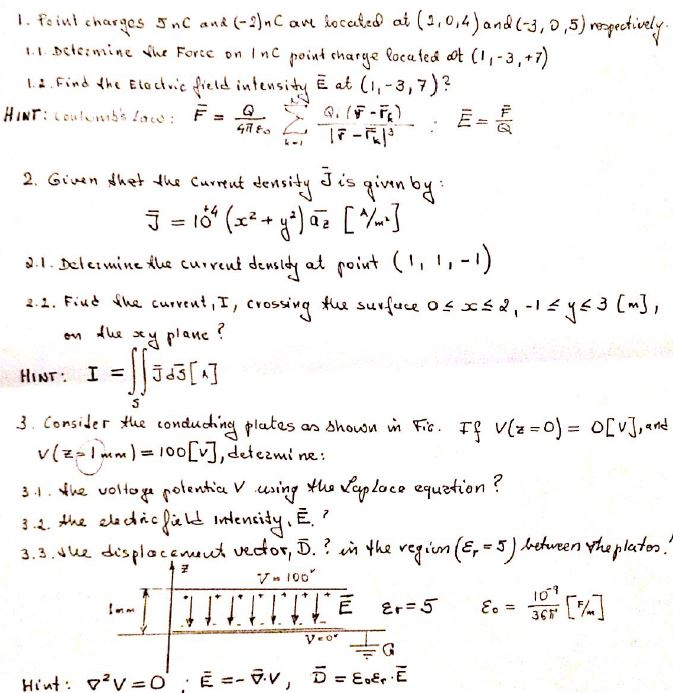 1. Point charges 5nC and (-2)nC are located at (2,0,4) and (-3,0,5) respectively.
1.1. Determine the Force on 1nC point charge located at (1,-3,+7)
1.2. Find the Electric field intensity Ē at (1,-3,7)?
HINT: Coulomb's Law: F̄ = Q/4πε₀ Σ k=1 Qₖ(r̄-r̄ₖ)/|r̄-r̄ₖ|³ ; Ē = F̄/Q
2. Given that the current density J̄ is given by:
J̄ = 10⁺⁴ (x² + y²) āz [A/m²]
2.1. Determine the current density at point (1, 1, -1)
2.2. Find the current, I, crossing the surface 0 ≤ x ≤ 2, -1 ≤ y ≤ 3 [m],
on the xy plane?
HINT: I = ∬ J̄ dS̄ [A]
S
3. Consider the conducting plates as shown in Fic. If V(z=0) = 0[V], and
V(z=1mm) = 100[V], determine:
3.1. the voltage potentia V using the Laplace equation?
3.2. the electric field intencity, Ē.?
3.3. the displacement vector, D̄.? in the region (εr = 5) between the plates.!
z
V = 100ᵛ
1mm Ē εr=5 ε₀ = 10⁻⁹/36π [F/m]
V=0ᵛ
G
Hint: ∇²V = 0 ; Ē = -∇̄·V, D̄ = ε₀εr·Ē